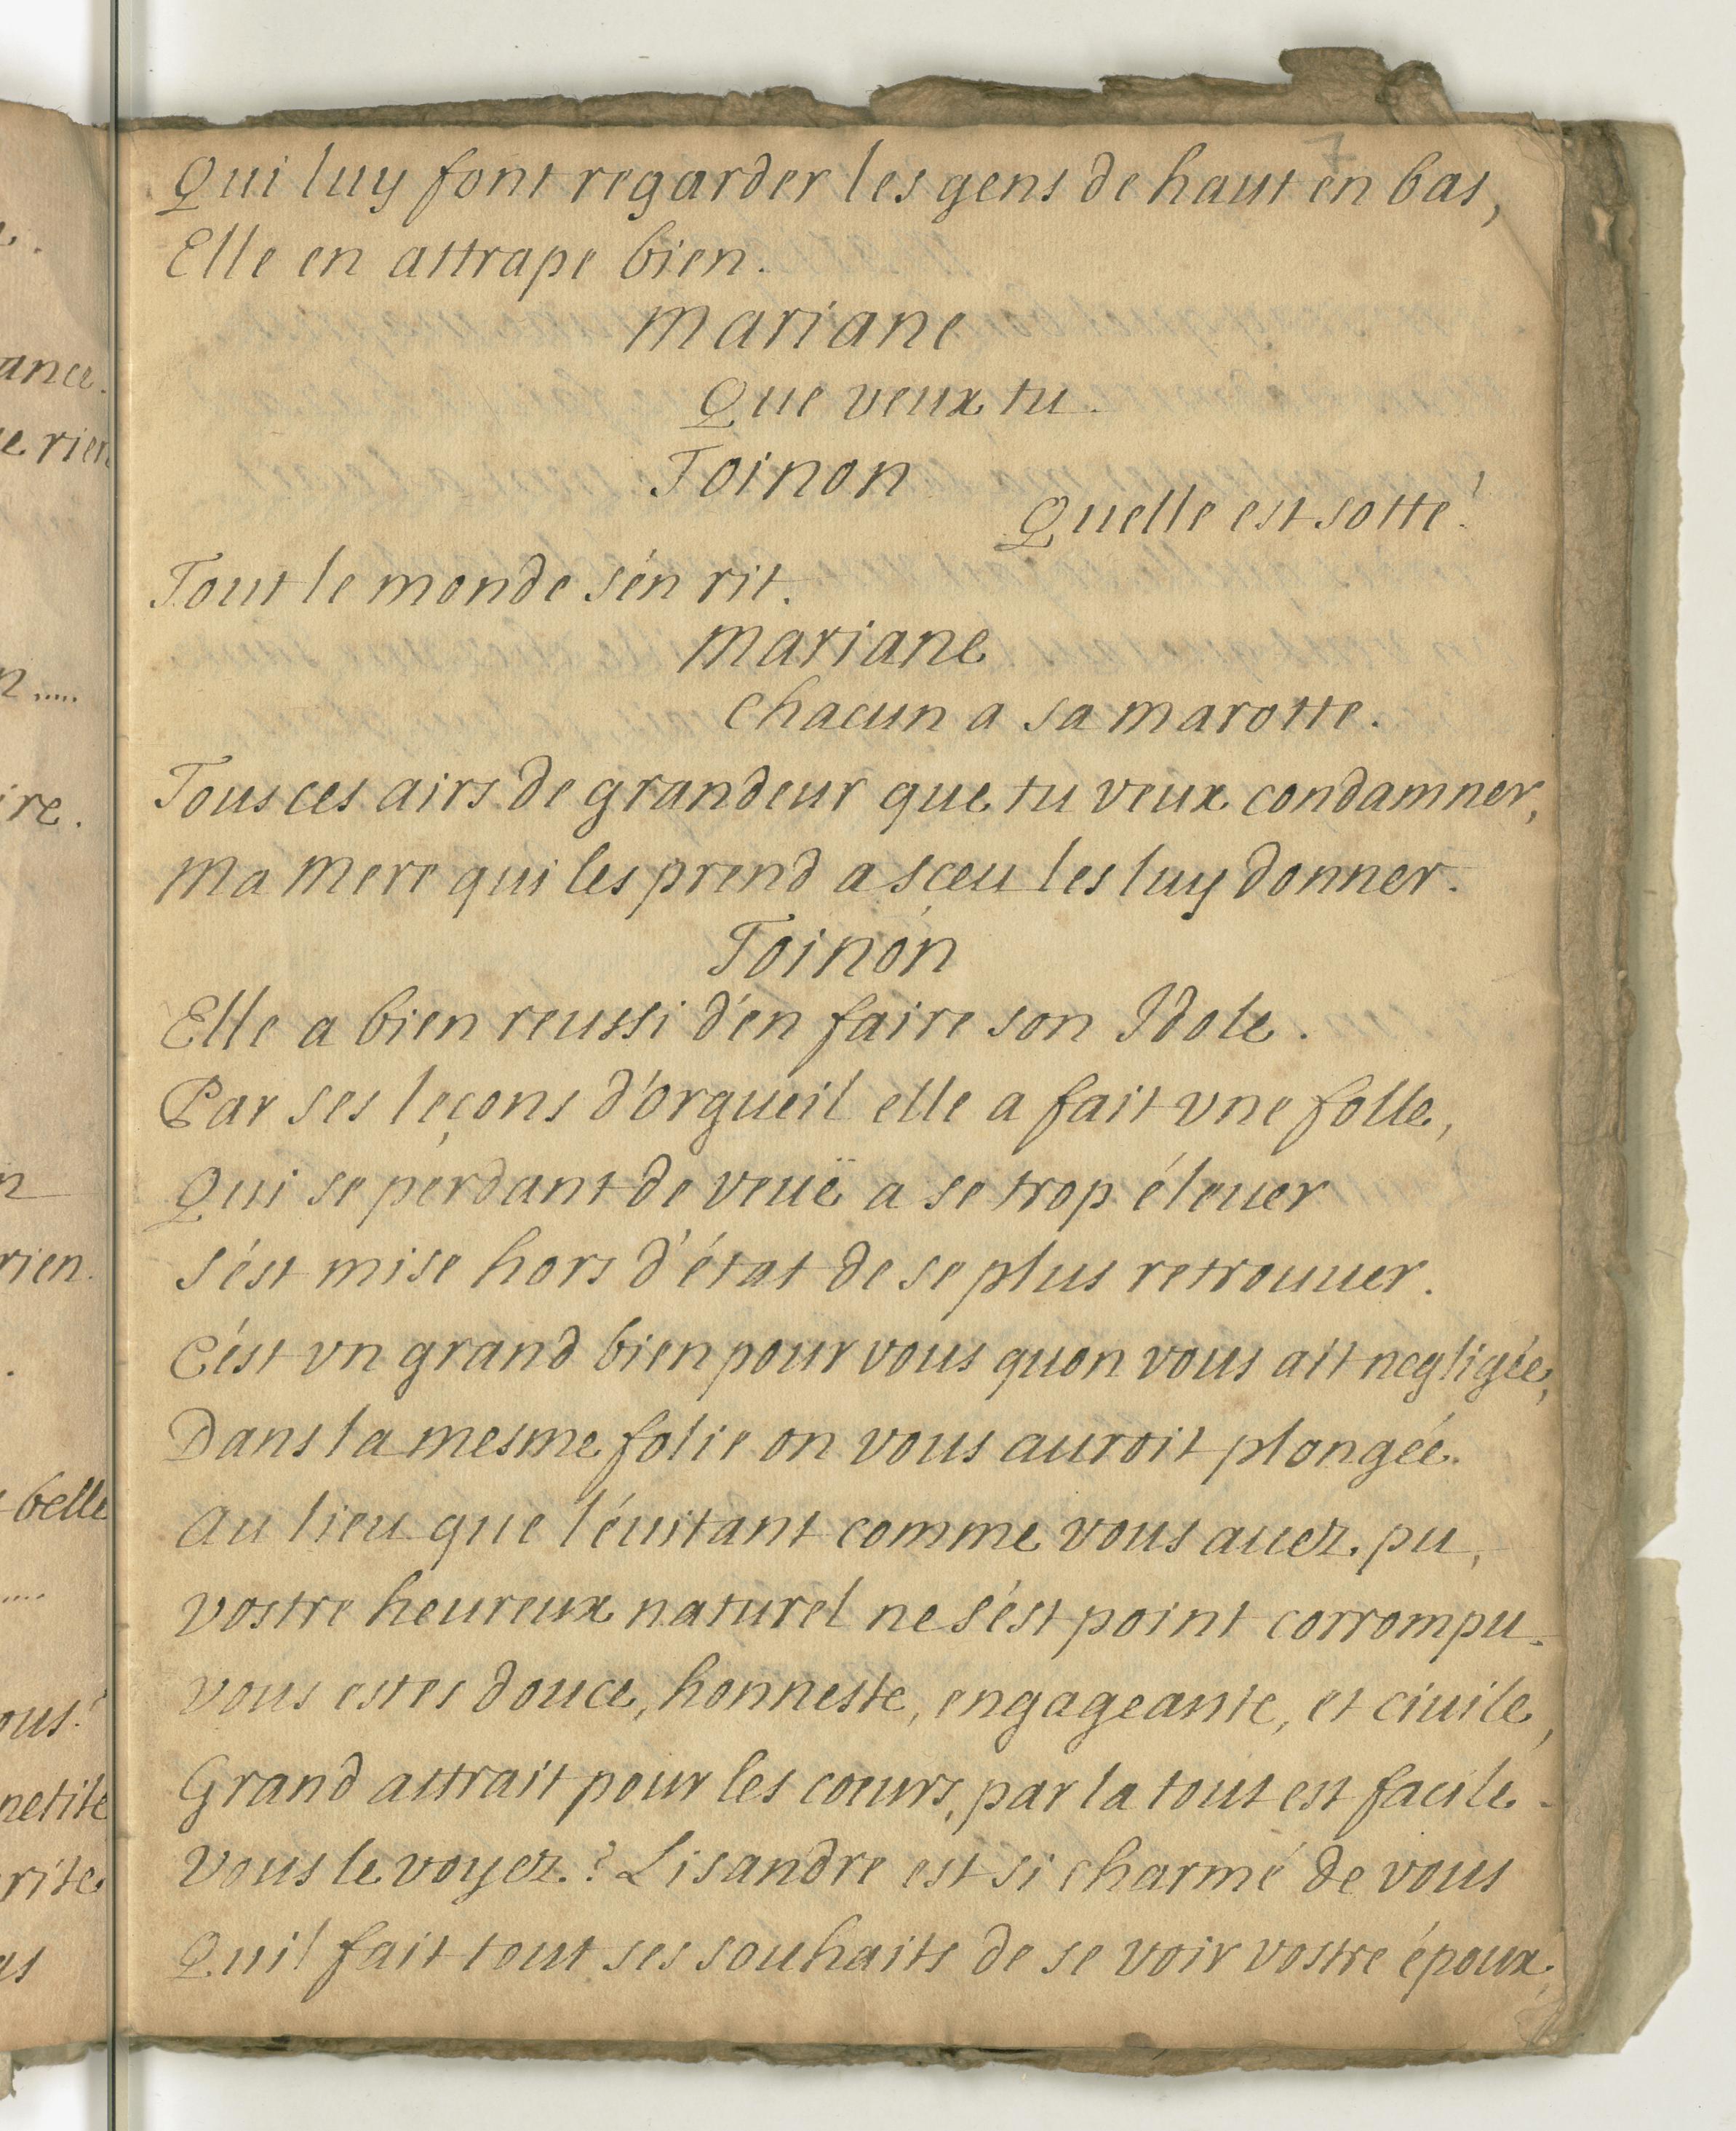 7
Qui luy font regarder les gens de haut en bas,
Elle en attrape bien.
Mariane
Que veux tu.
Toinon
Quelle est sotte!
Tout le monde s'én rit.
Mariane
Chacun a sa marotte.
Tous ces airs de grandeur que tu veux condamner,
Ma Mere qui les prend a sceu les luy donner.
Toinon
Elle a bien reussi d'én faire son Idole.
Par ses leçons d'orgueil elle a fait vne folle,
Qui se perdant de veuë a se trop éleuer
S'ést mise hors d'état de se plus retrouuer.
C'ést vn grand bien pour vous quon vous ait negligée,
Dans la mesme folie on vous auroit plongée.
Au lieu que l'éuitant comme vous auez pu,
Vostre heureux naturel ne s'ést point corrompu.
Vous estes douce, honneste, engageante, et ciuile,
Grand attrait pour les coeurs, par la tout est facile.
Vous le voyez? Lisandre est si charmé de vous
Quil fait tout ses souhaits de se voir vostre époux,
ance.
rien
n .....
ire.
n
rien.
belle
....
ous!
rite
as